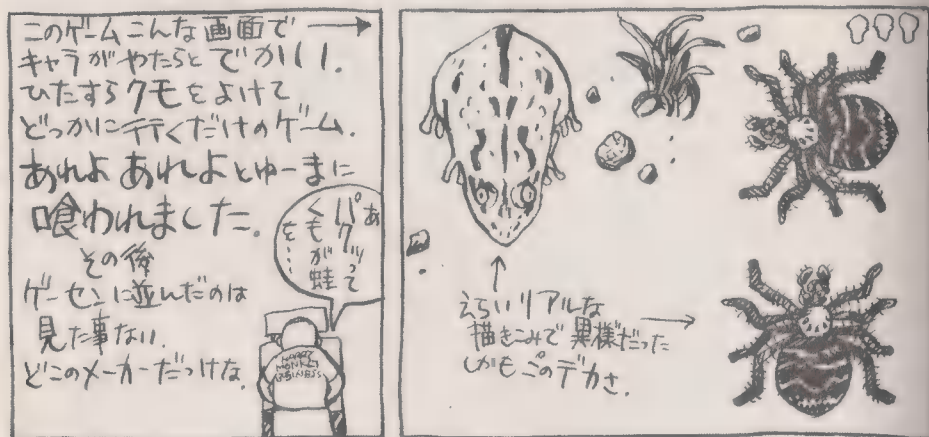 このゲームこんな画面で
キャラがやたらとでかい。
ひたすらクモをよけて
どっかに行くだけのゲーム。
あれよあれよとゆーまに
喰われました。
その後
ゲーセンに並んだのは
見た事ない。
どこのメーカーだっけな。
あ
パクッって
くもが蛙
を…
HAPPY
MONKEY
BUSINESS
えらいリアルな
描きこみで異様だった
しかもこのデカさ。